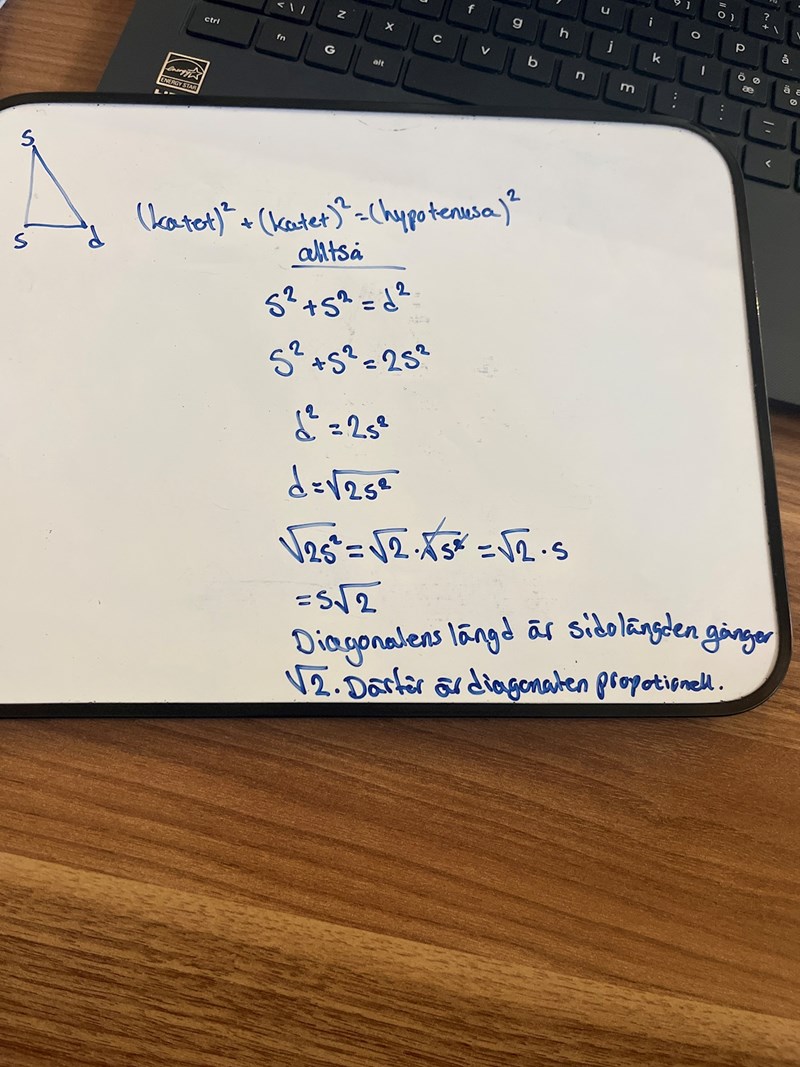 ctrl
<\|
z
f
g
u
i
9)]
=
0}
?
+\
fn
x
h
o
p
å
G
c
j
k
alt
v
l
ö ø
æ
b
n
m
;
:
<
energy
ENERGY STAR
s
s
d
(katet)² + (katet)² = (hypotenusa)²
alltså
s² + s² = d²
s² + s² = 2s²
d² = 2s²
d = √2s²
√2s² = √2 · √s² = √2 · s
= s√2
Diagonalens längd är sidolängden gånger
√2. Därför är diagonalen propotionell.